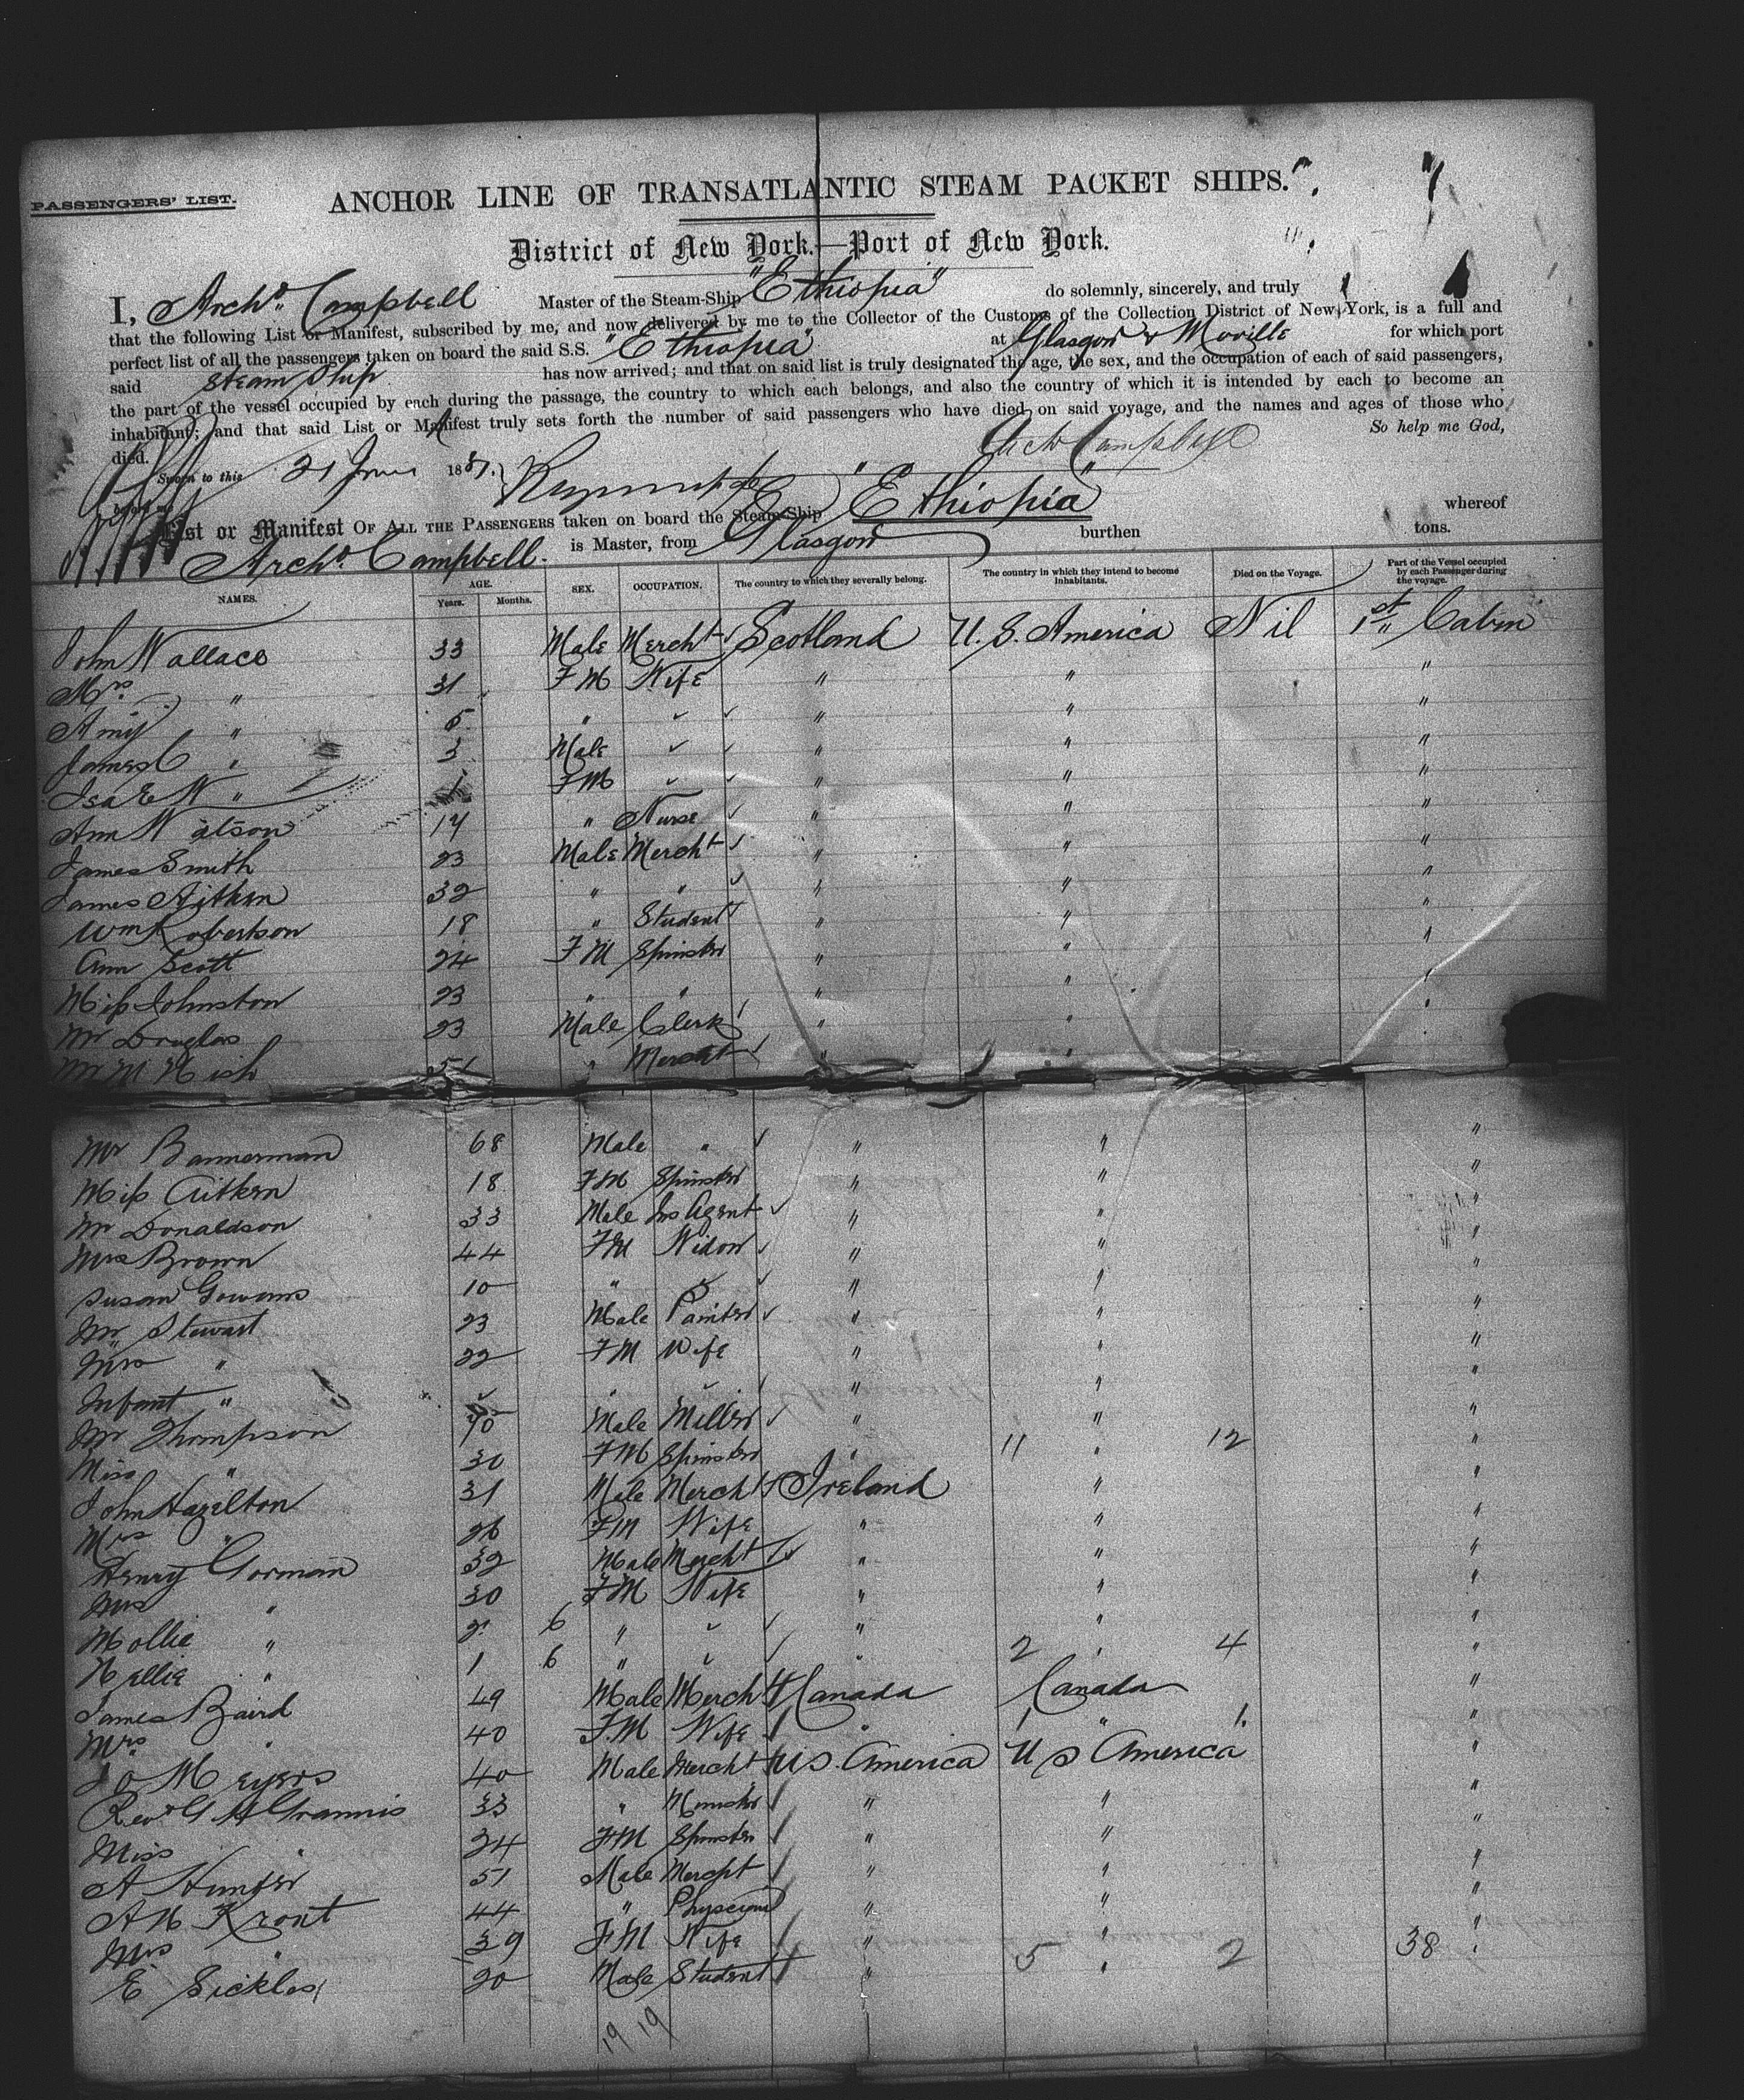 PASSENGERS' LIST.
ANCHOR LINE OF TRANSATLANTIC STEAM PACKET SHIPS.
District of New York.—Port of New York.
I, Archd. Campbell Master of the Steam-Ship "Ethiopia" do solemnly, sincerely, and truly
that the following List or Manifest, subscribed by me, and now delivered by me to the Collector of the Customs of the Collection District of New York, is a full and
perfect list of all the passengers taken on board the said S.S. "Ethiopia" at Glasgow & Moville for which port
said Steam Ship has now arrived; and that on said list is truly designated the age, the sex, and the occupation of each of said passengers,
the part of the vessel occupied by each during the passage, the country to which each belongs, and also the country of which it is intended by each to become an
inhabitant; and that said List or Manifest truly sets forth the number of said passengers who have died on said voyage, and the names and ages of those who
died. So help me God,
Arch Campbell
Sworn to this 21 June 1881.
before me
List or Manifest OF ALL THE PASSENGERS taken on board the Steam-Ship "Ethiopia" whereof
Archd. Campbell. is Master, from Glasgow burthen tons.
NAMES. AGE. Years. Months. SEX. OCCUPATION. The country to which they severally belong. The country in which they intend to become inhabitants. Died on the Voyage. Part of the Vessel occupied by each Passenger during the voyage.
John Wallace 33 Male Mercht Scotland U.S. America Nil 1st Cabin
Mrs. " 31 FM Wife " " "
Amy " 5 " " " "
James C " 3 Male " " "
Isa E W " 1 FM " " "
Ann Watson 17 " Nurse " " "
James Smith 23 Male Mercht " " "
James Aitken 32 " " " " "
Wm Robertson 18 " Student " " "
Ann Scott 24 FM Spinster " " "
Miss Johnston 23 " " " " "
Mr Douglas 23 Male Clerk " " "
Mr M Nish 51 " Mercht " "
Mr Bannerman 68 Male " " " "
Miss Aitken 18 FM Spinster " " "
Mr Donaldson 33 Male Ins Agent " " "
Mrs Brown 44 FM Widow " " "
Susan Gowans 10 " " " "
Mr Stewart 23 Male Painter " " "
Mrs " 22 FM Wife " " "
Infant " " " " "
Mr Thompson 70 Male Miller " " "
Miss " 30 FM Spinster " 11 " 12 "
John Hazelton 31 Male Mercht Ireland " "
Mrs " 26 FM Wife " " "
Henry Gorman 32 Male Mercht " " "
Mrs " 30 FM Wife " " "
Mollie " 2 6 " " " "
Nellie " 1 6 " " 2 " 4 "
James Baird 49 Male Mercht Canada Canada "
Mrs. " 40 FM Wife " 1 " 1. "
J O Meyers 40 Male Mercht U.S. America U S America "
Revd G H Grannis 33 " Minister " " "
Miss " 34 FM Spinster " " "
A Hunter 51 Male Mercht " " "
A N Kront 44 " Physician " " "
Mrs " 39 FM Wife " " "
E Sickles 20 Male Student " 5 " 2 38 "
19 19